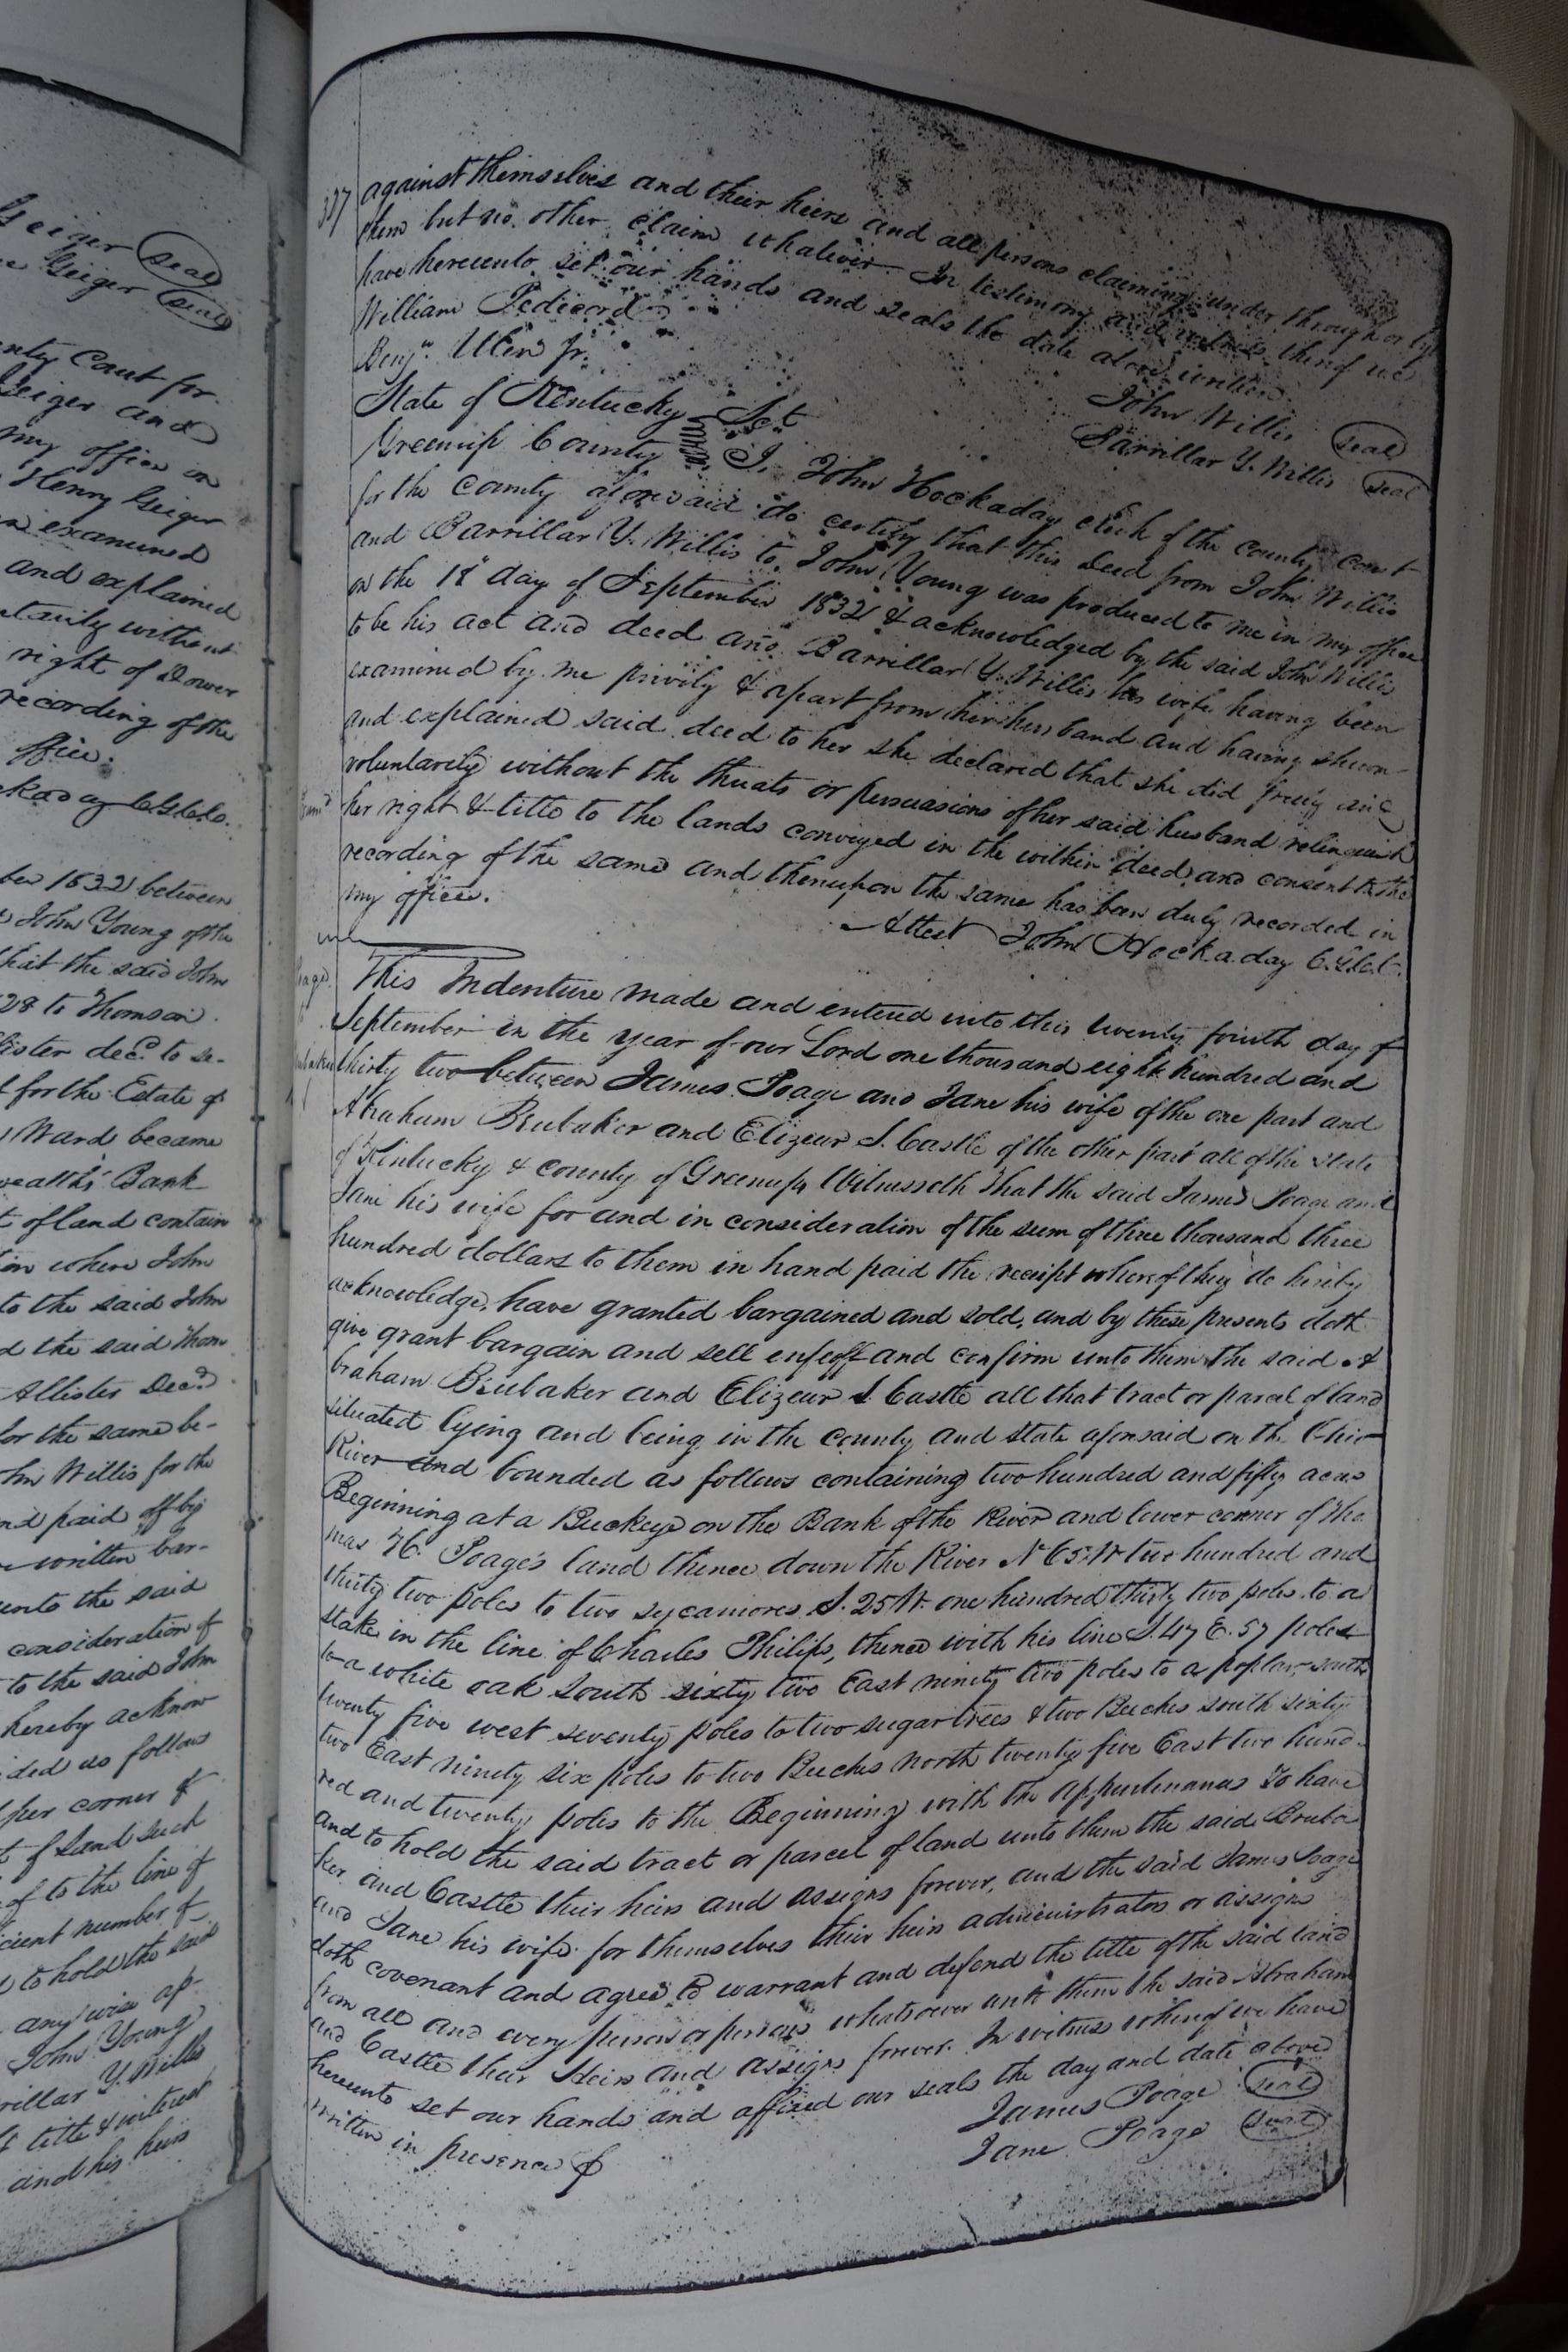 Geiger Seal
Geiger Seal
Court for
Geiger and
my office on
Henry Geiger
examined
and explained
without
right of Dower
recording of the
office.
1832 between
John Young of the
that the said John
28 to Thomson
dec.d to se-
for the Estate of
Ward became
Bank
of land contain
where John
to the said John
the said Thom
Allister Dec.d
for the same be-
Willis for the
paid off by
written bar-
unto the said
consideration of
to the said John
hereby acknow
as follows
corner of
of Land such
of to the line of
number of
to hold the said
any wise ap-
John Young
Y. Willis
title & interest
and his heirs
327 against themselves and their heirs and all persons claiming under through or by
them but no other claim whatever In testimony and witness thereof we
have hereunto set our hands and seals the date above written
William Pedicord
John Willis Seal
Benjn. Ulen Jr.
Barrillar Y. Willis Seal
State of Kentucky Sct
Greenup County I, John Hockaday clerk of the county court
for the county aforesaid do certify that this Deed from John Willis
and Barrillar Y. Willis to John Young was produced to me in my office
on the 18th day of September 1832 & acknowledged by the said John Willis
to be his act and deed and Barrillar Y. Willis his wife having been
examined by me privily & apart from her husband and having shewn
and explained said deed to her she declared that she did freely and
voluntarily without the threats or persuasions of her said husband relinquish
her right & title to the lands conveyed in the within deed and consent to the
recording of the same and thereupon the same has been duly recorded in
my office.
Attest John Hockaday C.G.C.C.
This Indenture made and entered into this twenty fourth day of
September in the year of our Lord one thousand eight hundred and
thirty two between James Poage and Jane his wife of the one part and
Abraham Brubaker and Elizeur S. Castle of the other part all of the state
of Kentucky & county of Greenup Witnesseth That the said James Poage and
Jane his wife for and in consideration of the sum of three thousand three
hundred dollars to them in hand paid the receipt whereof they do hereby
acknowledge, have granted bargained and sold, and by these presents doth
give grant bargain and sell enfeoff and confirm unto them the said A
braham Brubaker and Elizeur S. Castle all that tract or parcel of land
situated lying and being in the county and state aforesaid on the Ohio
River and bounded as follows containing two hundred and fifty acres
Beginning at a Buckeye on the Bank of the River and lower corner of Tho
mas H. Poage's land thence down the River N 65 W two hundred and
thirty two poles to two sycamores S. 25 W. one hundred thirty two poles to a
stake in the line of Charles Philips, thence with his line S. 47 E. 57 poles
to a white oak South sixty two East ninety two poles to a poplar, south
twenty five west seventy poles to two sugartrees & two Beeches south sixty
two East ninety six poles to two Beeches north twenty five East two hund-
red and twenty poles to the Beginning with the appurtenances To have
and to hold the said tract or parcel of land unto them the said Bruba
ker and Castle their heirs and assigns forever, and the said James Poage
and Jane his wife for themselves their heirs administrators or assigns
doth covenant and agree to warrant and defend the title of the said land
from all and every person or persons whatsoever unto them the said Abraham
and Castle their Heirs and assigns forever. In witness whereof we have
hereunto set our hands and affixed our seals the day and date above
written in presence of
James Poage Seal
Jane Poage Seal